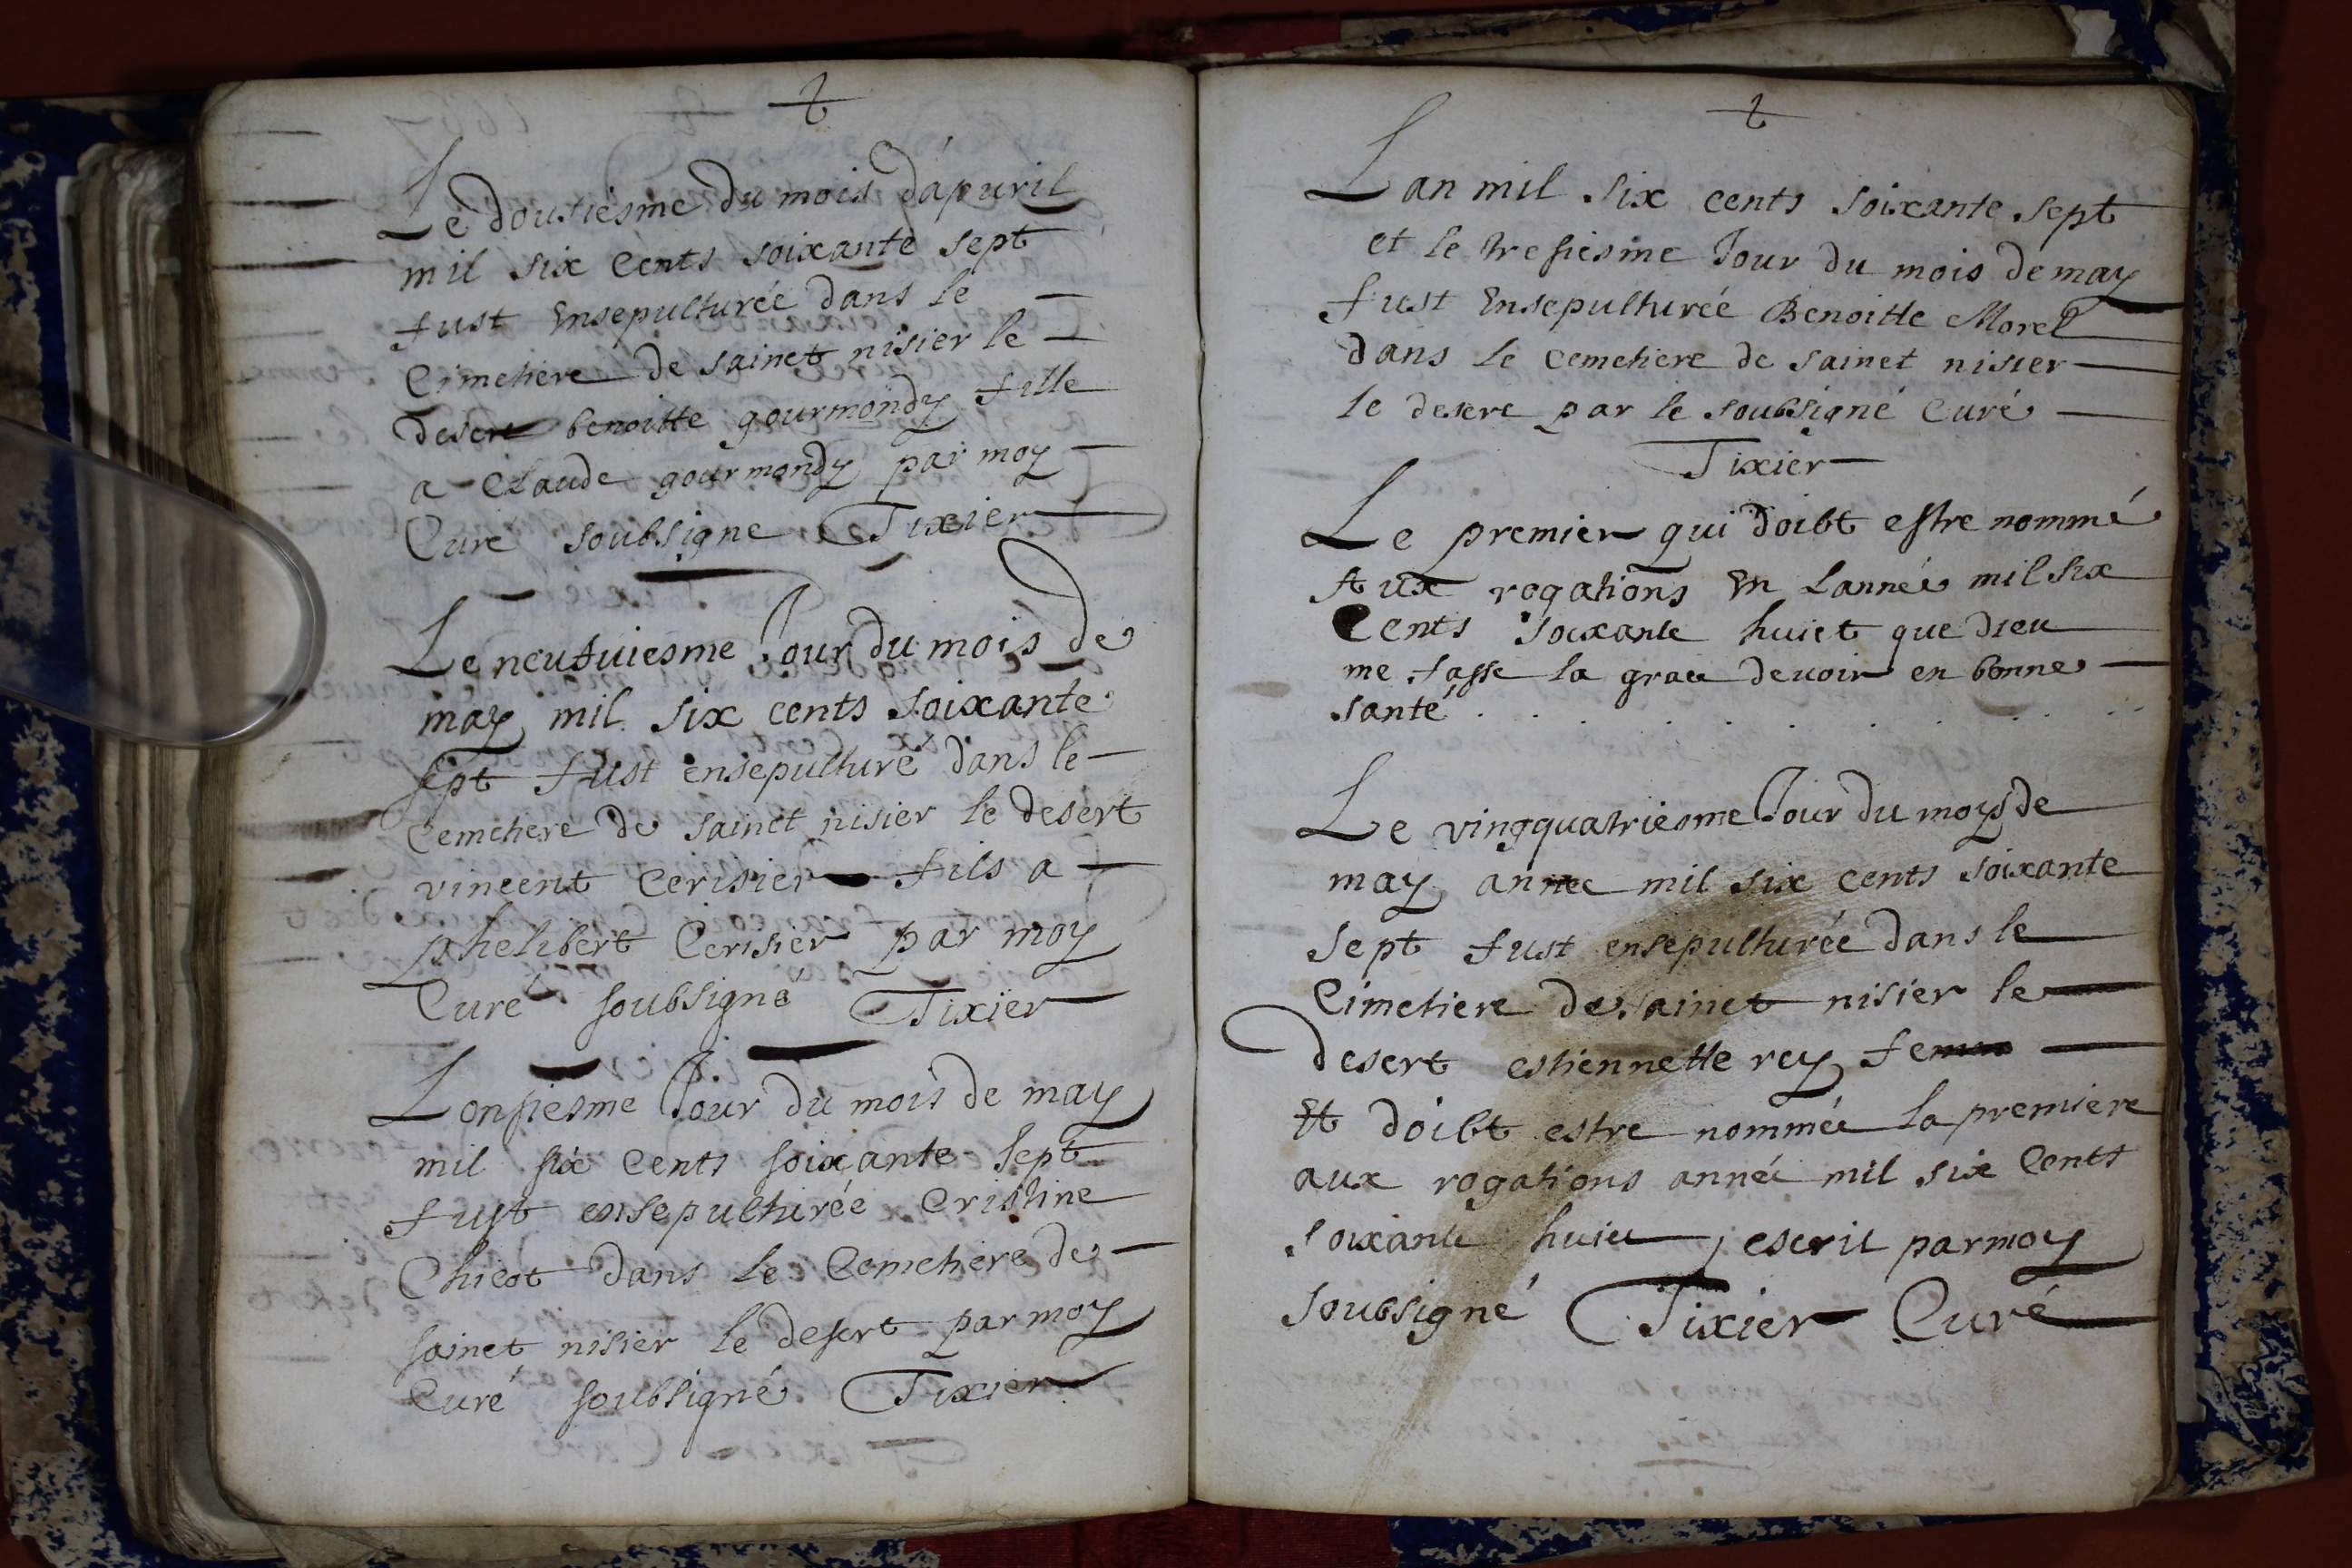 Le dousiesme du mois dápuril
mil six cents soixante sept
fust Ensepulturée dans le
Cimetiere de sainct nisier le
desert benoitte gourmondy fille
a Claude gourmondy par moy
Curé soubsigne Tixier
Le neufuiesme Jour du mois de
may mil six cents soixante
sept fust ensepulturé dans le
Cemetiere de sainct nisier le desert
vincent Cerisier fils a
phelibert Cerisier par moy
Curé soubsigné Tixier
Lonsiesme Jour du mois de may
mil six Cents soixante sept
fust ensepulturée Cristine
Chicot dans le Cemetiere de
sainct nisier le desert par moy
Curé soubsigné Tixier
Lan mil six cents soixante sept
et le tresiesme Jour du mois de may
fust Ensepulturée Benoitte Morel
dans le cemetiere de sainct nisier
le desert par le soubsigné Curé
Tixier
Le premier qui doibt estre nommé
Aux rogations En Lannée mil six
Cents soixante huict que dieu
me fasse la grace devoir en bonne
santé
Le vingquatriesme Jour du moys de
may annee mil six cents soixante
sept fust ensepulturée dans le
Cimetiere de sainct nisier le
desert estiennette rey
Et doibt estre nommée la premiere
aux rogations année mil six Cents
soixante huict escrit par moy
soubsigné Tixier Curé